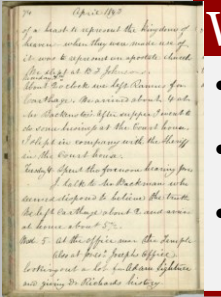 74 April 1842
of a beast to represent the kingdom of
heaven when they were made use of
it was to represent an apostate church
We slept at J. Johnsons.
Monday 3
About 2 o clock we left Ramus for
Carthage. We arrived about 4 oclo
Mr Backenstos after supper I went to
do some business at the Court house.
I slept in company with the Sheriff
in the Court house.
Tuesday 4 Spent the forenoon hearing Joseph
& talk to Mr Backman who
seemed disposed to believe the truth
We left Carthage about 2 and arrived
at home about 5½.
Wed. 5. At the office near the Temple
also at prest. Josephs office,
looking out a lot for
and giving Dr Richards history
W